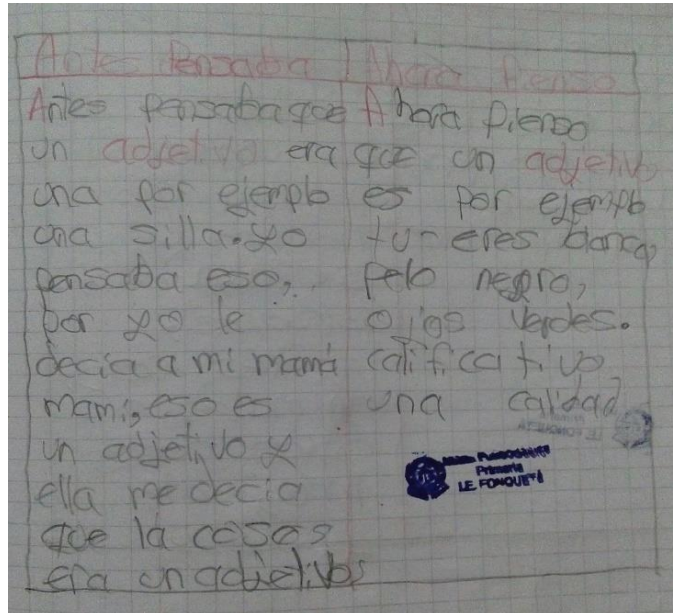 Antes Pensaba
Antes pensaba que
un adjetivo era
una por ejemplo
una silla. yo
pensaba eso,
por yo le
decia a mi mamá
mami, eso es
un adjetivo y
ella me decia
que la cosas
era un adjetivos
Ahora Pienso
Ahora pienso
que un adjetivo
es por ejemplo
tu- eres blanca,
pelo negro,
ojos verdes.
calificativo
una calidad
Primaria
LE FONQUETÁ